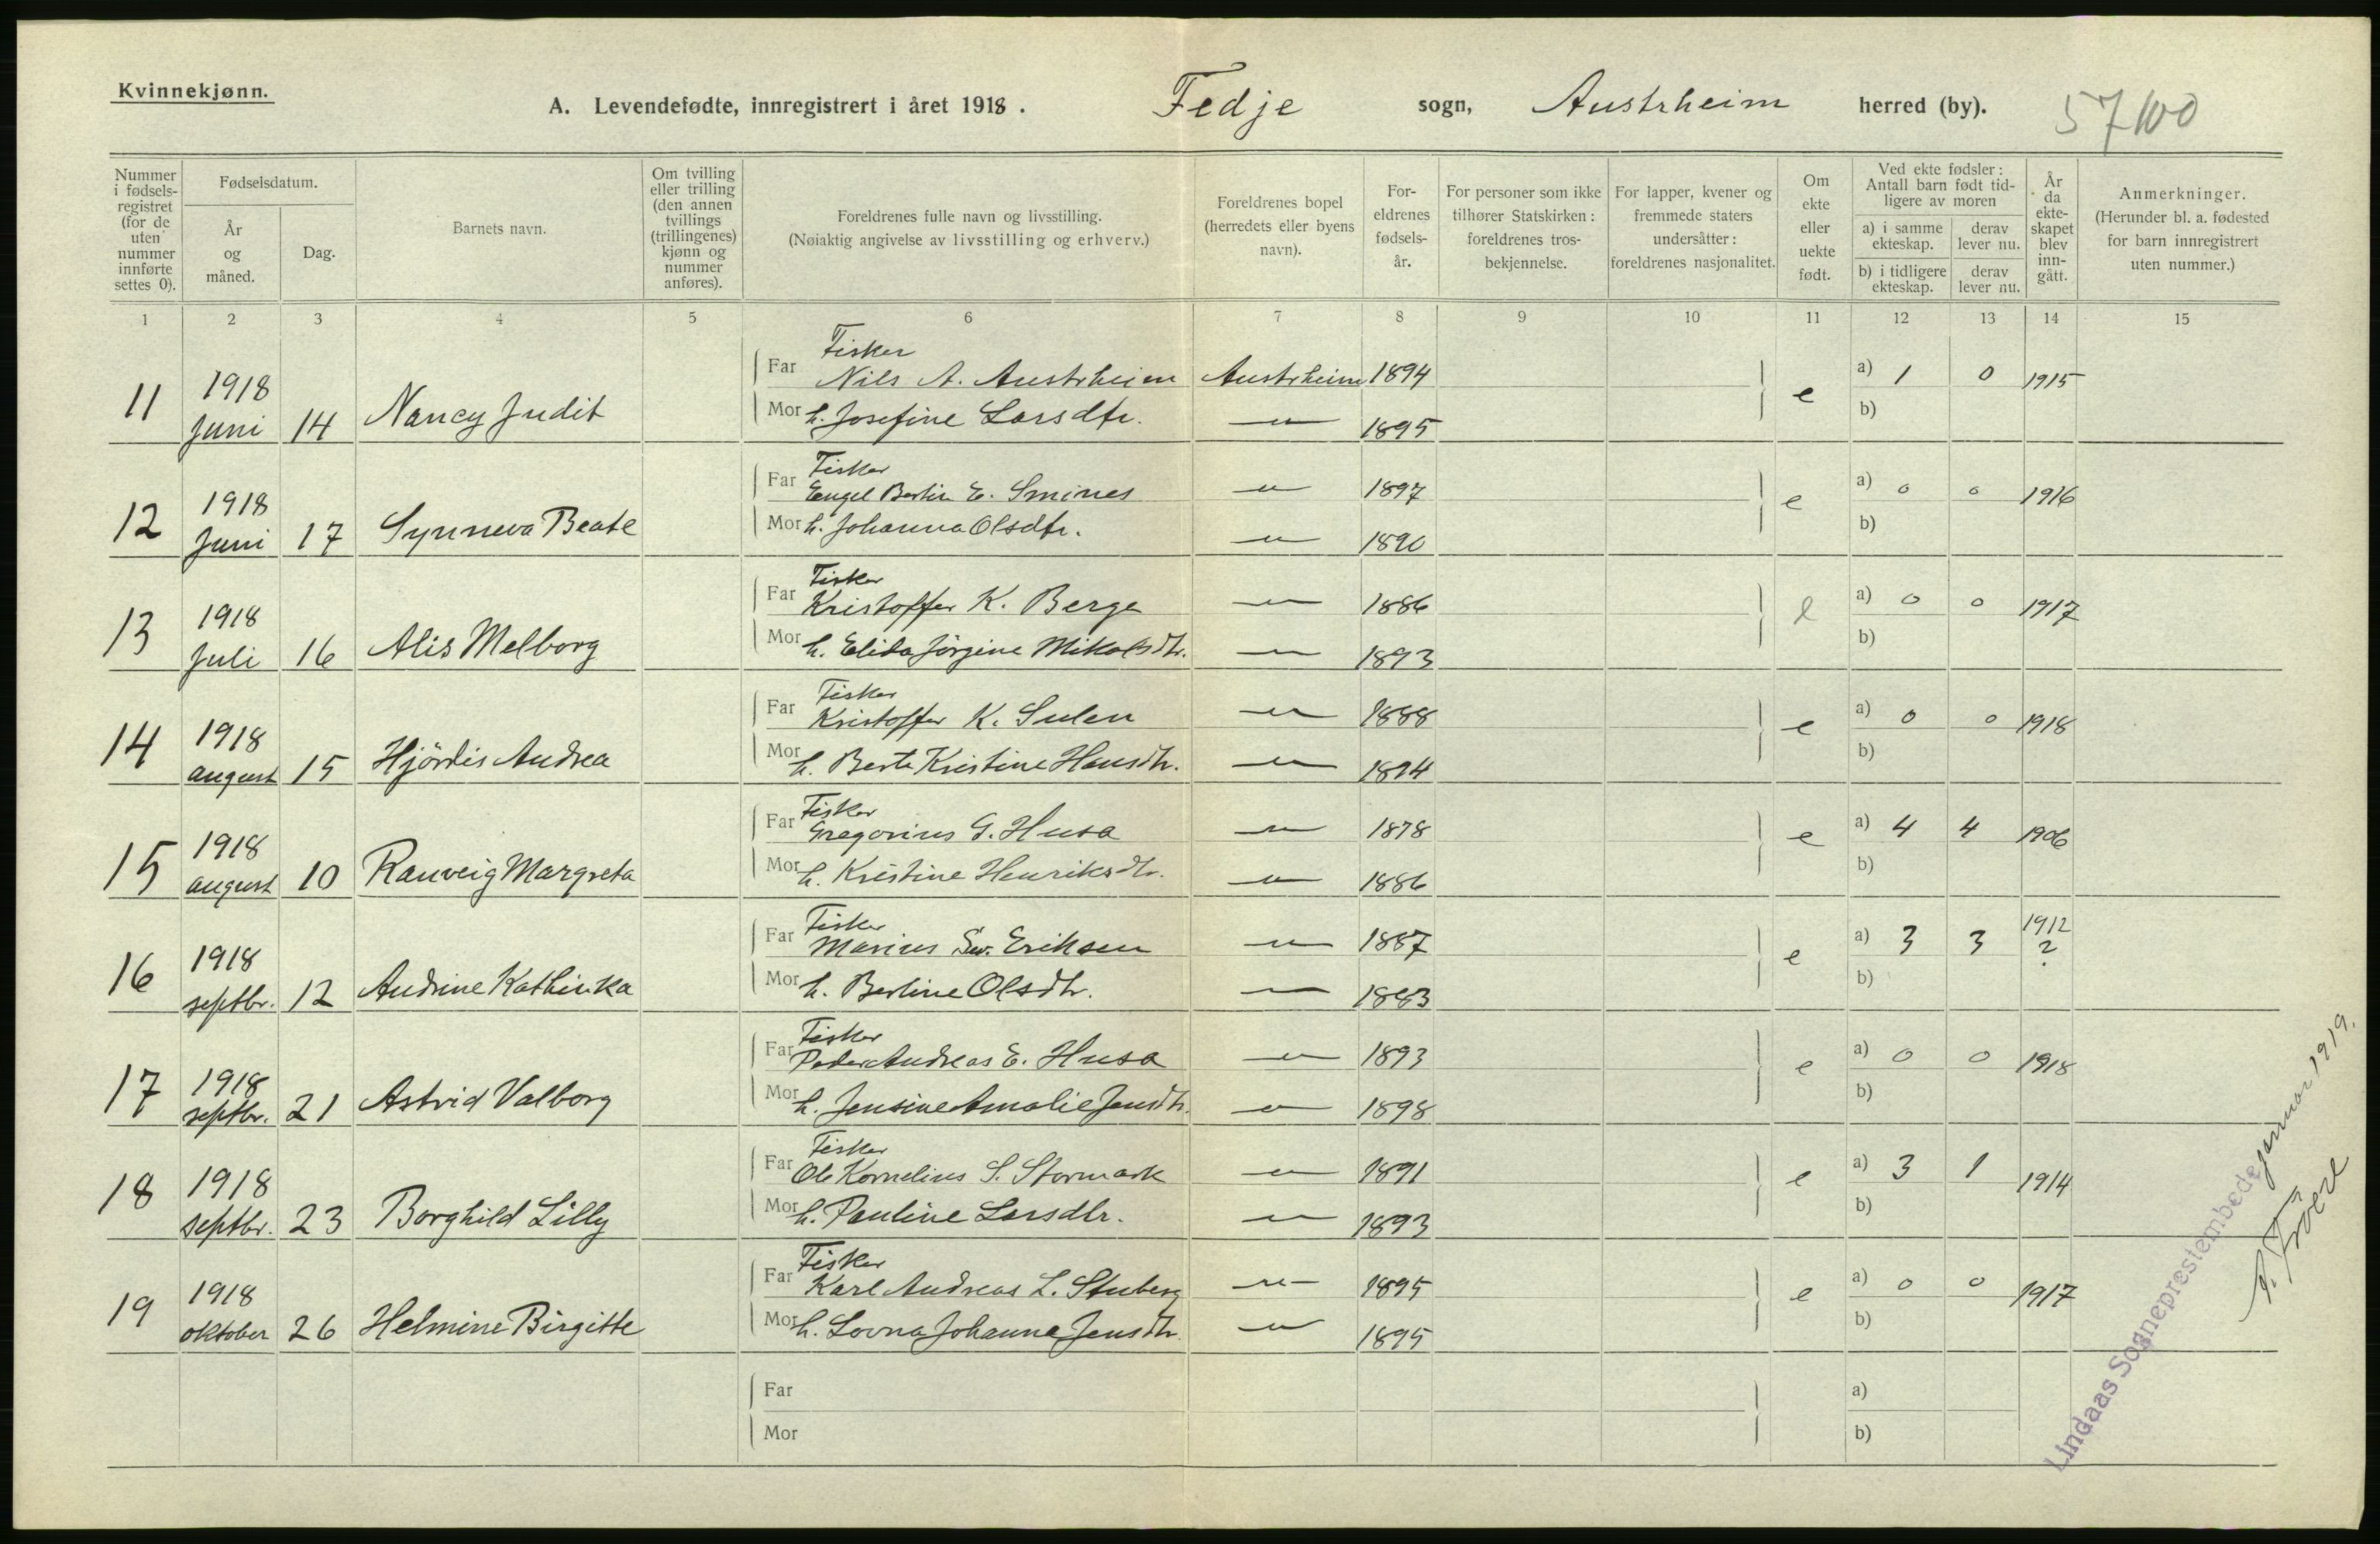 Kvinnekjønn.
A. Levendefødte, innregistrert i året 1918.
Fedje sogn, Austrheim herred (by).
57/100
Nummer i fødsels- registret (for de uten nummer innførte settes 0).
Fødselsdatum.
År og måned.
Dag.
Barnets navn.
Om tvilling eller trilling (den annen tvillings (trillingenes) kjønn og nummer anføres).
Foreldrenes fulle navn og livsstilling.
(Nøiaktig angivelse av livsstilling og erhverv.)
Foreldrenes bopel (herredets eller byens navn).
For- eldrenes fødsels- år.
For personer som ikke tilhører Statskirken: foreldrenes tros- bekjennelse.
For lapper, kvener og fremmede staters undersåtter: foreldrenes nasjonalitet.
Om ekte eller uekte født.
Ved ekte fødsler: Antall barn født tid- ligere av moren
a) i samme ekteskap.
derav lever nu.
b) i tidligere ekteskap.
derav lever nu.
År da ekte- skapet blev inn- gått.
Anmerkninger.
(Herunder bl. a. fødested for barn innregistrert uten nummer.)
1 2 3 4 5 6 7 8 9 10 11 12 13 14 15
Fisker
11 1918 Juni 14 Nancy Judit Far Nils A. Austrheim Austrheim 1894 e a) 1 0 1915
Mor h. Josefine Larsdtr. —"— 1895 b)
Fisker
12 1918 Juni 17 Synneva Beate Far Engel Bertin E. Smines —"— 1897 e a) 0 0 1916
Mor h. Johanna Olsdtr. —"— 1890 b)
Fisker
13 1918 Juli 16 Alis Melborg Far Kristoffer K. Berge —"— 1886 e a) 0 0 1917
Mor h. Elida Jörgine Mikalsdtr. —"— 1893 b)
Fisker
14 1918 august 15 Hjördis Andrea Far Kristoffer K. Sulen —"— 1888 e a) 0 0 1918
Mor h. Berte Kristine Hansdtr. —"— 1894 b)
Fisker
15 1918 august 10 Ranveig Margreta Far Gregorius G. Husa —"— 1878 e a) 4 4 1906
Mor h. Kristine Henriksdtr. —"— 1886 b)
Fisker
16 1918 septbr. 12 Andrine Kathinka Far Marius Sev. Eriksen —"— 1887 e a) 3 3 1912 ?
Mor h. Bertine Olsdtr. —"— 1883 b)
Fisker
17 1918 septbr. 21 Astrid Valborg Far Peder Andreas E. Husa —"— 1893 e a) 0 0 1918
Mor h. Jensine Amalie Jensdtr. —"— 1898 b)
Fisker
18 1918 septbr. 23 Borghild Lilly Far Ole Kornelius S. Stormark —"— 1891 e a) 3 1 1914
Mor h. Pauline Larsdtr. —"— 1893 b)
Fisker
19 1918 oktober 26 Helmine Birgitte Far Karl Andreas L. Stuberg —"— 1895 e a) 0 0 1917
Mor h. Lovna Johanna Jensdtr. —"— 1895 b)
Far a)
Mor b)
Lindaas Sogneprestembede januar 1919.